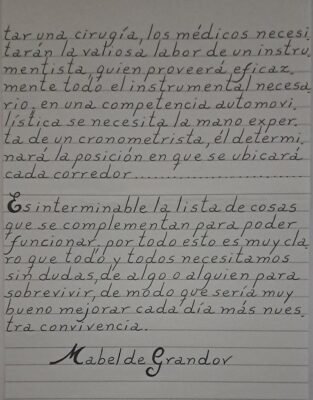 tar una cirugía, los médicos necesi.
tarán la valiosa labor de un instru.
mentista, quien proveerá eficaz.
mente todo el instrumental necesa.
rio, en una competencia automovi.
lística se necesita la mano exper.
ta de un cronometrista, él determi.
nará la posición en que se ubicará
cada corredor......................
Es interminable la lista de cosas
que se complementan para poder
funcionar, por todo esto es muy cla.
ro que todo y todos necesitamos
sin dudas, de algo o alguien para
sobrevivir, de modo que sería muy
bueno mejorar cada día más nues.
tra convivencia.
Mabel de Grandov